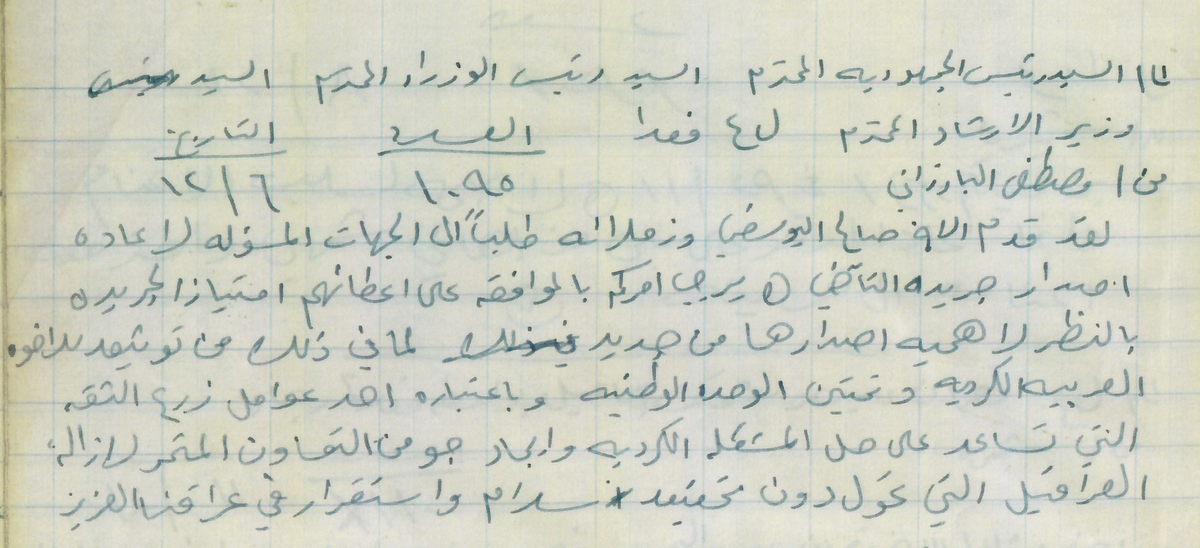 الى / السيد رئيس الجمهوريه المحترم السيد رئيس الوزراء المحترم السيد
وزير الارشاد المحترم ل ع فقدا العدد التاريخ
من / مصطفى البارزاني ١٠٩٥ ١٢/٦
لقد قدم الاخ صالح اليوسفي وزملائه طلباً الى الجهات المسؤله لاعاده
اصدار جريده التآخي يرجى امركم بالموافقه على اعطائهم امتياز الجريده
بالنظر لاهميه اصدارها من جديد لما في ذلك من توثيق للاخوه
العربيه الكرديه وتمتين الوحده الوطنيه وباعتباره احد عوامل زرع الثقه
التي تساعد على حل المشكله الكرديه وايجاد جو من التعاون المثمر لازاله
العراقيل التي تحول دون تحقيق سلام واستقرار في عراقنا العزيز